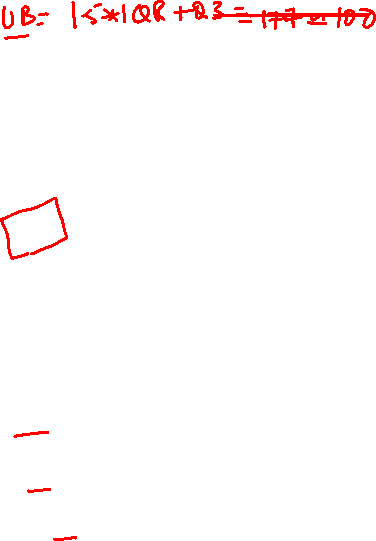 UB = 1.5*IQR + Q3 = 177 = 100